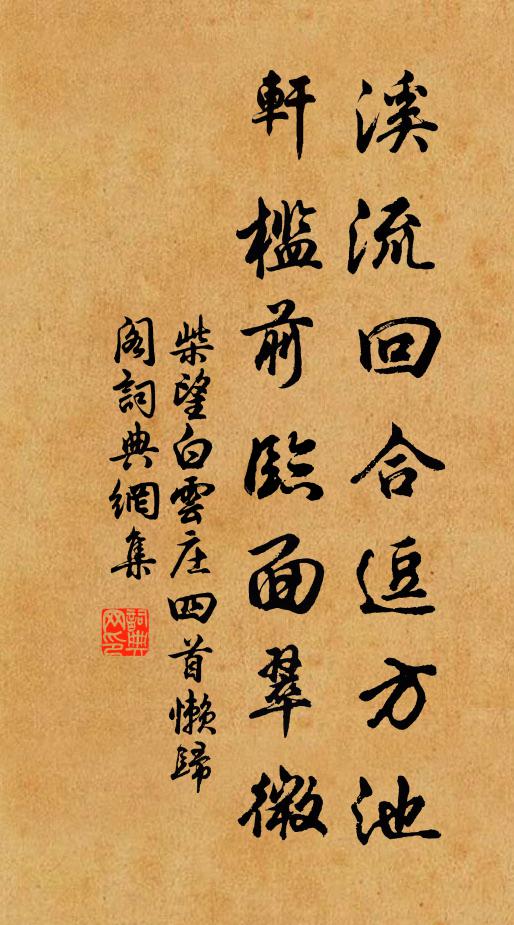 溪流回合逗方池
軒檻前臨面翠微
柴望白雲庄四首懶歸
閣詞典網集
詞典網印